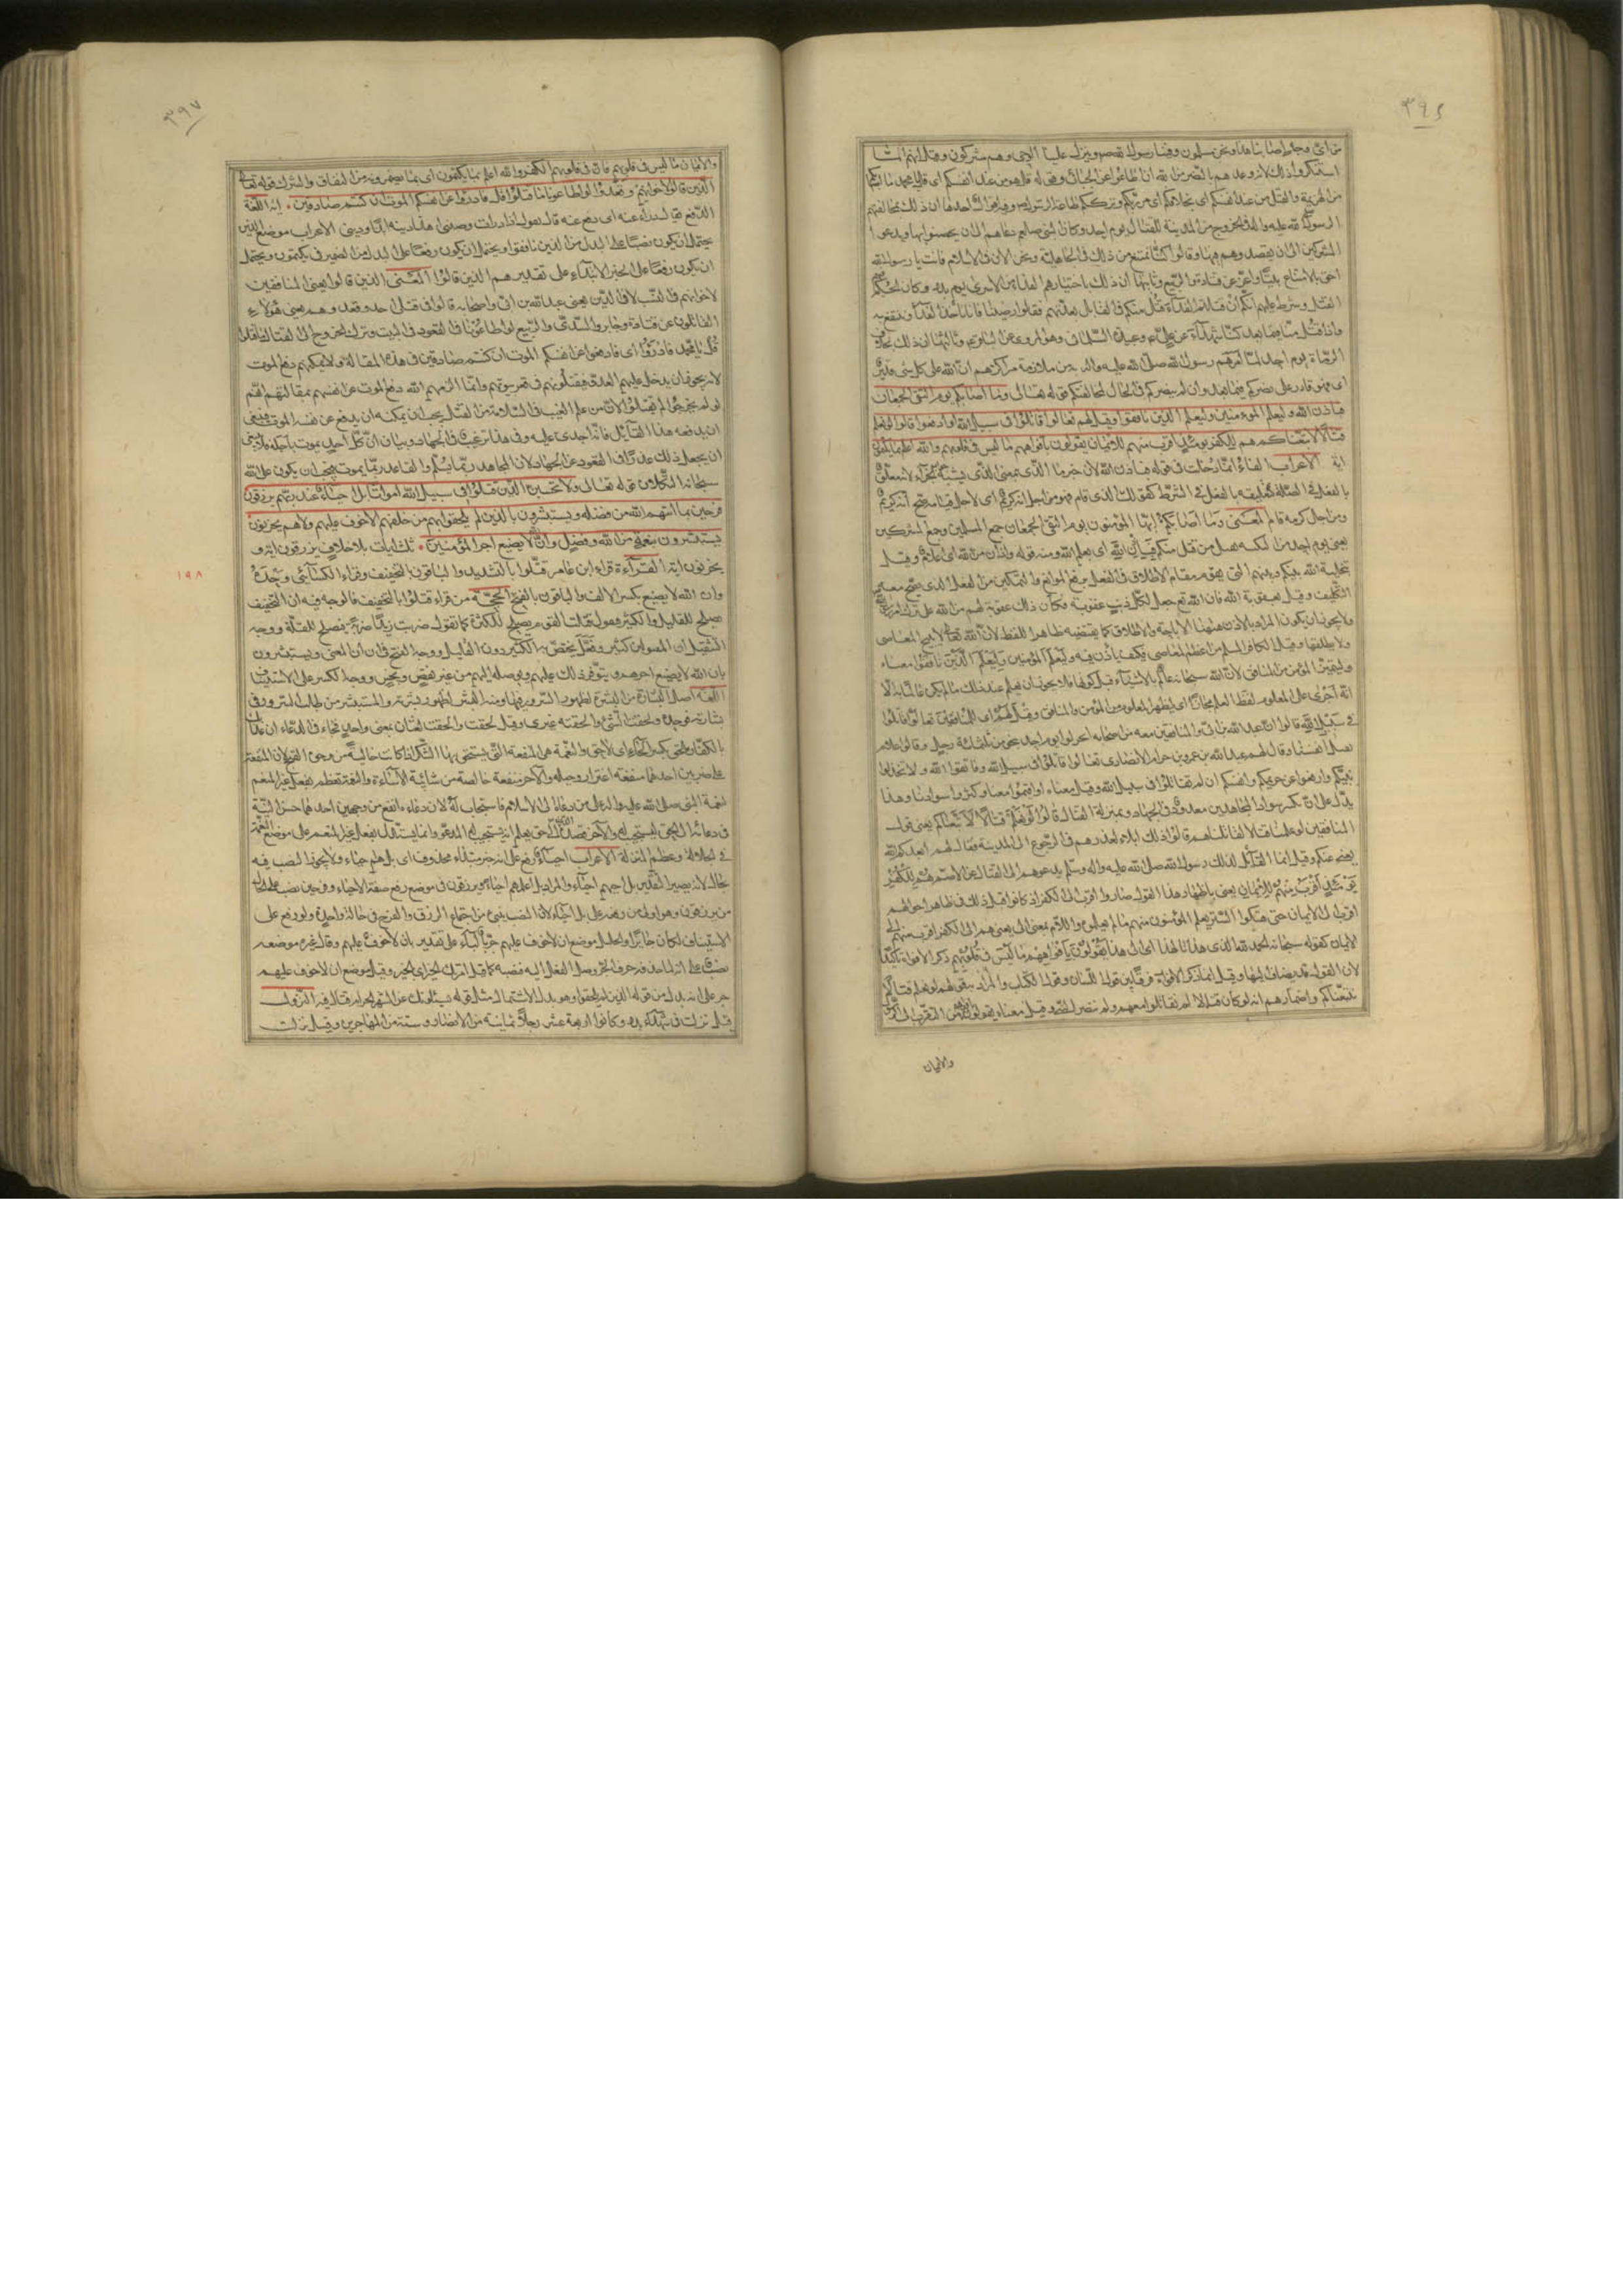 ٣٩٦
من اى وجه اصابنا هذا ونحن مسلمون وفينا رسول الله وينزل عليه الوحى وهم مشركون وقيل انهم انما
استنكروا ذلك لانه وعدهم بالنصر من الله ان اطاعوه عن الجبائى وقوله قل هو من عند انفسكم اى قل يا محمد ما اصابكم
من الهزيمة والقتل من عند انفسكم اى بخلافكم امر ربكم وترككم طاعة الرسول وفيه اقوال احدها ان ذلك مخالفتهم
الرسول صلى الله عليه واله فى الخروج من المدينة للقتال يوم احد وكان النبى دعاهم الى ان يتحصنوا بها ويدعوا
المشركين الى ان يقصدوهم فيها وقالوا كنا نمتنع من ذلك فى الجاهلية ونحن الان فى الاسلام فانت يا رسول الله
احق بالامتناع عن قتادة والربيع وثانيها ان ذلك باختيارهم الفداء من الاسرى يوم بدر وكان الحكم فيهم
القتل وشرط عليهم انكم ان قبلتم الفداء قتل منكم فى القابل بعدتهم فقالوا رضينا فانا ناخذ الفداء وننتفع به
واذا قتل منا فيما بعد كنا شهداء عن على ع وعبيدة السلمانى وهو المروى عن الباقر ع وثالثها ان ذلك بخلاف
الرماة يوم احد لما امرهم رسول الله صلى الله عليه واله به من ملازمة مراكزهم ان الله على كل شئ قدير
اى فهو قادر على نصركم فيما بعد وان لم ينصركم فى الحال لمخالفتكم قوله تعالى وما اصابكم يوم التقى الجمعان
فباذن الله وليعلم المؤمنين وليعلم الذين نافقوا وقيل لهم تعالوا قاتلوا فى سبيل الله او ادفعوا قالوا لو نعلم
قتالا لاتبعناكم هم للكفر يومئذ اقرب منهم للايمان يقولون بافواههم ما ليس فى قلوبهم والله اعلم بما يكتمون
اية الاعراب الفاء انما دخلت فى قوله فباذن الله لان خبر ما الذى بمعنى الذى يشبه الجزاء لانه معلق
بالفعل فى الصلة كتعليقه بالفعل فى الشرط كقولك الذى قام فمن اجل انه كريم اى لاجل قيامه صح انه كريم
ومن اجل كرمه قام المعنى وما اصابكم ايها المؤمنون يوم التقى الجمعان جمع المسلمين وجمع المشركين
يعنى يوم احد من النكبة بقتل من قتل منكم فباذن الله اى بعلم الله ومنه قوله واذان من الله اى اعلام وقيل
بتخلية الله بينكم وبينهم التى تقوم مقام الاطلاق فى الفعل برفع الموانع والتمكين من الفعل الذى يصح معه
التكليف وقيل بعقوبة الله فان الله تع جعل لكل ذنب عقوبة وكان ذلك عقوبة لهم من الله على ترك امر رسول الله
ولا يجوز ان يكون المراد بالاذن ههنا الاباحة والاطلاق كما يقتضيه ظاهر اللفظ لان الله تعالى لا يبيح المعاصى
ولا يطلقها وقتل الكافر المسلم من اعظم المعاصى فكيف ياذن فيه وليعلم المؤمنين وليعلم الذين نافقوا معناه
وليميز المؤمن من المنافق لان الله سبحانه عالم بالاشياء قبل كونها فلا يجوز ان يعلم عند ذلك ما لم يكن عالما به الا
انه اجرى على المعلوم لفظ العلم مجازا اى ليظهر المعلوم من المؤمن والمنافق وقيل لهم اى للمنافقين تعالوا قاتلوا
فى سبيل الله قالوا ان عبد الله بن ابى والمنافقين معه من اصحابه انخزلوا يوم احد نحو من ثلثمائة رجل وقالوا علام
نقتل انفسنا وقال لهم عبد الله بن عمرو بن حزام الانصارى تعالوا قاتلوا فى سبيل الله واتقوا الله ولا تخذلوا
نبيكم او ادفعوا عن حريمكم وانفسكم ان لم تقاتلوا فى سبيل الله وقيل معناه او اقيموا معنا وكثروا سوادنا وهذا
يدل على ان تكثير سواد المجاهدين معدود فى الجهاد وبمنزلة القتال قالوا لو نعلم قتالا لاتبعناكم يعنى قول
المنافقين لو علمنا قتالا لقاتلناهم قالوا ذلك ابلاء لعذرهم فى الرجوع الى المدينة فقال لهم ابعدكم الله
يغنى عنكم وقيل انما القائل لذلك رسول الله صلى الله عليه واله وسلم يدعوهم الى القتال هم للكفر
يومئذ اقرب منهم للايمان يعنى باظهار هذا القول صاروا اقرب الى الكفر اذ كانوا قبل ذلك فى ظاهر احوالهم
اقرب الى الايمان حتى هتكوا الستر فعلم المؤمنون منهم ما لم يعلموه واللام بمعنى الى يعنى هم الى الكفر اقرب منهم الى
الايمان كقوله سبحانه الحمد لله الذى هدانا لهذا اى الى هذا يقولون بافواههم ما ليس فى قلوبهم ذكر الافواه تاكيدا
لان القول قد يضاف اليها وقيل انما ذكر الافواه فرقا بين قول اللسان وقول الكتاب والمراد به قولهم لو نعلم قتالا
لاتبعناكم واضمارهم انه لو كان قتالا لم يقاتلوا معهم ولم ينصروا النبى وقيل معناه يقولون بافواههم من التقرب الى الرسول
والايمان
٣٩٧
والايمان ما ليس فى قلوبهم فان فى قلوبهم الكفر والله اعلم بما يكتمون اى بما يضمرونه من النفاق والشرك قوله تعالى
الذين قالوا لاخوانهم وقعدوا لو اطاعونا ما قتلوا قل فادرؤا عن انفسكم الموت ان كنتم صادقين اية اللغة
الدرء الدفع يقال درأ عنه اى دفع عنه قال تقول اذا درأت لها وضينى اهذا دينه ابدا ودينى الاعراب موضع الذين
يحتمل ان يكون نصبا على البدل من الذين نافقوا ويحتمل ان يكون رفعا على البدل من الضمير فى يكتمون ويحتمل
ان يكون رفعا على الخبر الابتداء على تقدير هم الذين قالوا المعنى الذين قالوا يعنى المنافقين
لاخوانهم فى النسب لا فى الدين يعنى عبد الله بن ابى واصحابه قالوا فى قتلى احد وقعد وهم يعنى هؤلاء
القائلون عن قتادة وجابر والسدى والربيع لو اطاعونا فى القعود فى البيت وترك الخروج الى القتال ما قتلوا
قل يا محمد فادرؤا اى فادفعوا عن انفسكم الموت ان كنتم صادقين فى هذه المقالة ولا يمكنهم دفع الموت
لانه يجوز ان يدخل عليهم العدو فيقتلونهم فى قعر بيوتهم وانما الزمهم الله دفع الموت عن انفسهم بمقالتهم انهم
لو لم يخرجوا لم يقتلوا لان من علم الغيب فى السلامة من القتل يجب ان يمكنه ان يدفع عن نفسه الموت فينبغى
ان يدفعه هذا القائل فانه اجدى عليه وفى هذا ترغيب فى الجهاد وبيان ان كل احد يموت باجله فلا ينبغى
ان يجعل ذلك عذرا فى القعود عن الجهاد لان المجاهد ربما يسلم والقاعد ربما يموت فيجب ان يكون على الله
سبحانه التكلان قوله تعالى ولا تحسبن الذين قتلوا فى سبيل الله امواتا بل احياء عند ربهم يرزقون
فرحين بما اتيهم الله من فضله ويستبشرون بالذين لم يلحقوا بهم من خلفهم الا خوف عليهم ولا هم يحزنون
يستبشرون بنعمة من الله وفضل وان الله لا يضيع اجر المؤمنين ثلث ايات بلا خلاف يرزقون اية و
يحزنون اية القراءة قرا ابن عامر قتلوا بالتشديد والباقون بالتخفيف وقرا الكسائى وحده
١٩٨
وان الله لا يضيع بكسر الالف والباقون بالفتح الحجة من قراء قتلوا بالتخفيف فالوجه فيه ان التخفيف
يصلح للقليل والكثير تقول ضربت زيدا ضربة فيصلح للقلة ووجه
التثقيل ان المقتولين كثير وفعل يختص به الكثير دون القليل ووجه الفتح فى ان ان المعنى ويستبشرون
بان الله لا يضيع اجرهم ويتوفر ذلك عليهم ويوصله اليهم من غير نقص وبخس ووجه الكسر على الاستيناف
اللغة اصل البشارة من البشرة لظهور السرور فيها ومنه البشر لظهور بشرته والمستبشر من طلب السرور فى
بشارته فوجده ولحقت الشئ والحقته غيرى وقيل لحقت والحقت لغتان بمعنى واحد وجاء فى الدعاء ان عذابك
بالكفار ملحق بكسر الحاء اى لاحق والنعمة هى المنفعة التى يستحق بها الشكر اذا كانت خالية من وجوه القبح لان المنفعة
على ضربين احدهما منفعة اغترار وحيلة والاخر منفعة خالصة من شائبة الاساءة والنعمة تعظم بفعل غير المنعم
كنعمة النبى صلى الله عليه واله على من دعاه الى الاسلام فاستجاب له لان دعاءه انفع من وجهين احدهما حسن النية
فى دعائه الى الحق ليستجيب له والاخر قصده الدعاء الى حق يعلم انه يستجيب له المدعو وانما يستدل بفعل غير المنعم على موضع النعمة
فى الجلالة وعظم المنزلة الاعراب احياء رفع على انه خبر مبتداء محذوف اى بل هم احياء ولا يجوز النصب فيه
بحال لانه يصير التقدير بل احسبهم احياء والمراد بل اعلمهم احياء ويرزقون فى موضع رفع صفة لاحياء وفرحين نصب على الحال
من يرزقون وهو اولى من رفعه على بل احياء لان النصب ينبئ عن اجتماع الرزق والفرح فى حالة واحدة ولو رفع على
الاستيناف لكان جائزا والجملة موضع ان لا خوف عليهم جر بالباء على تقدير بان لا خوف عليهم وقال غيره موضعه
نصب على انه لما حذف حرف الجر وصل الفعل اليه فنصبه كما قيل امرتك الخير اى بالخير وقيل موضع ان لا خوف عليهم
جر على انه بدل من قوله الذين لم يلحقوا وهو بدل الاشتمال مثل قوله يسئلونك عن الشهر الحرام قتال فيه النزول
قيل نزلت فى شهداء بدر وكانوا اربعة عشر رجلا ثمانية من الانصار وستة من المهاجرين وقيل نزلت